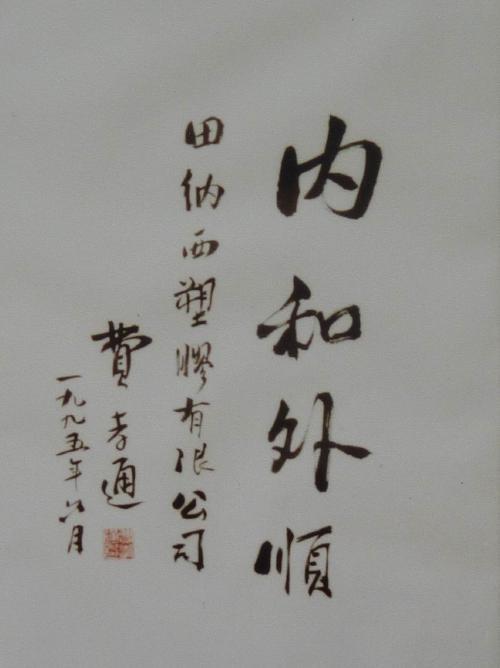 内和外順
田纳西塑膠有限公司
費孝通
一九九五年八月